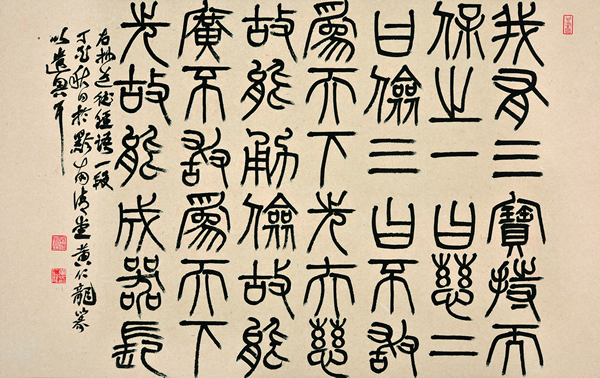 我有三寶持而
保之一曰慈二
曰儉三曰不敢
爲天下先夫慈
故能勇儉故能
廣不敢爲天下
先故能成器長
右抄道德經語一段
丁亥秋日於黔南清堂黄仁龍篆
以遣興耳